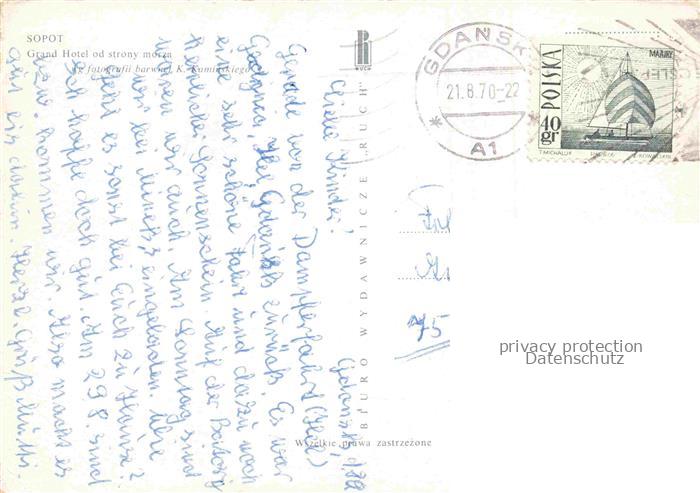 SOPOT
Grand Hotel od strony morza
wg fotografii barwnej K. Kamińskiego
RUCH
BIURO WYDAWNICZE „RUCH"
Wszelkie prawa zastrzeżone
GDAŃSK
21.8.70-22
* A1 *
POLSKA
40 gr
MAJĄRY
T. MICHALUK
Liebe Kinder!
Gerade von der Dampferfahrt (Hel)
Gdynia, Hel, Gdańsk zurück. Es war
eine sehr schöne Fahrt und dazu noch
herrlicher Sonnenschein. Auf der
waren wir auch. Am Sonntag sind
wir bei eingeladen. Wie
geht es sonst bei Euch zu Hause?
Ich hoffe doch gut. Am 29.8. sind
kommen wir. Also macht es
gut bis dahin. Herzl. Grüß Mutti.
75
privacy protection
Datenschutz